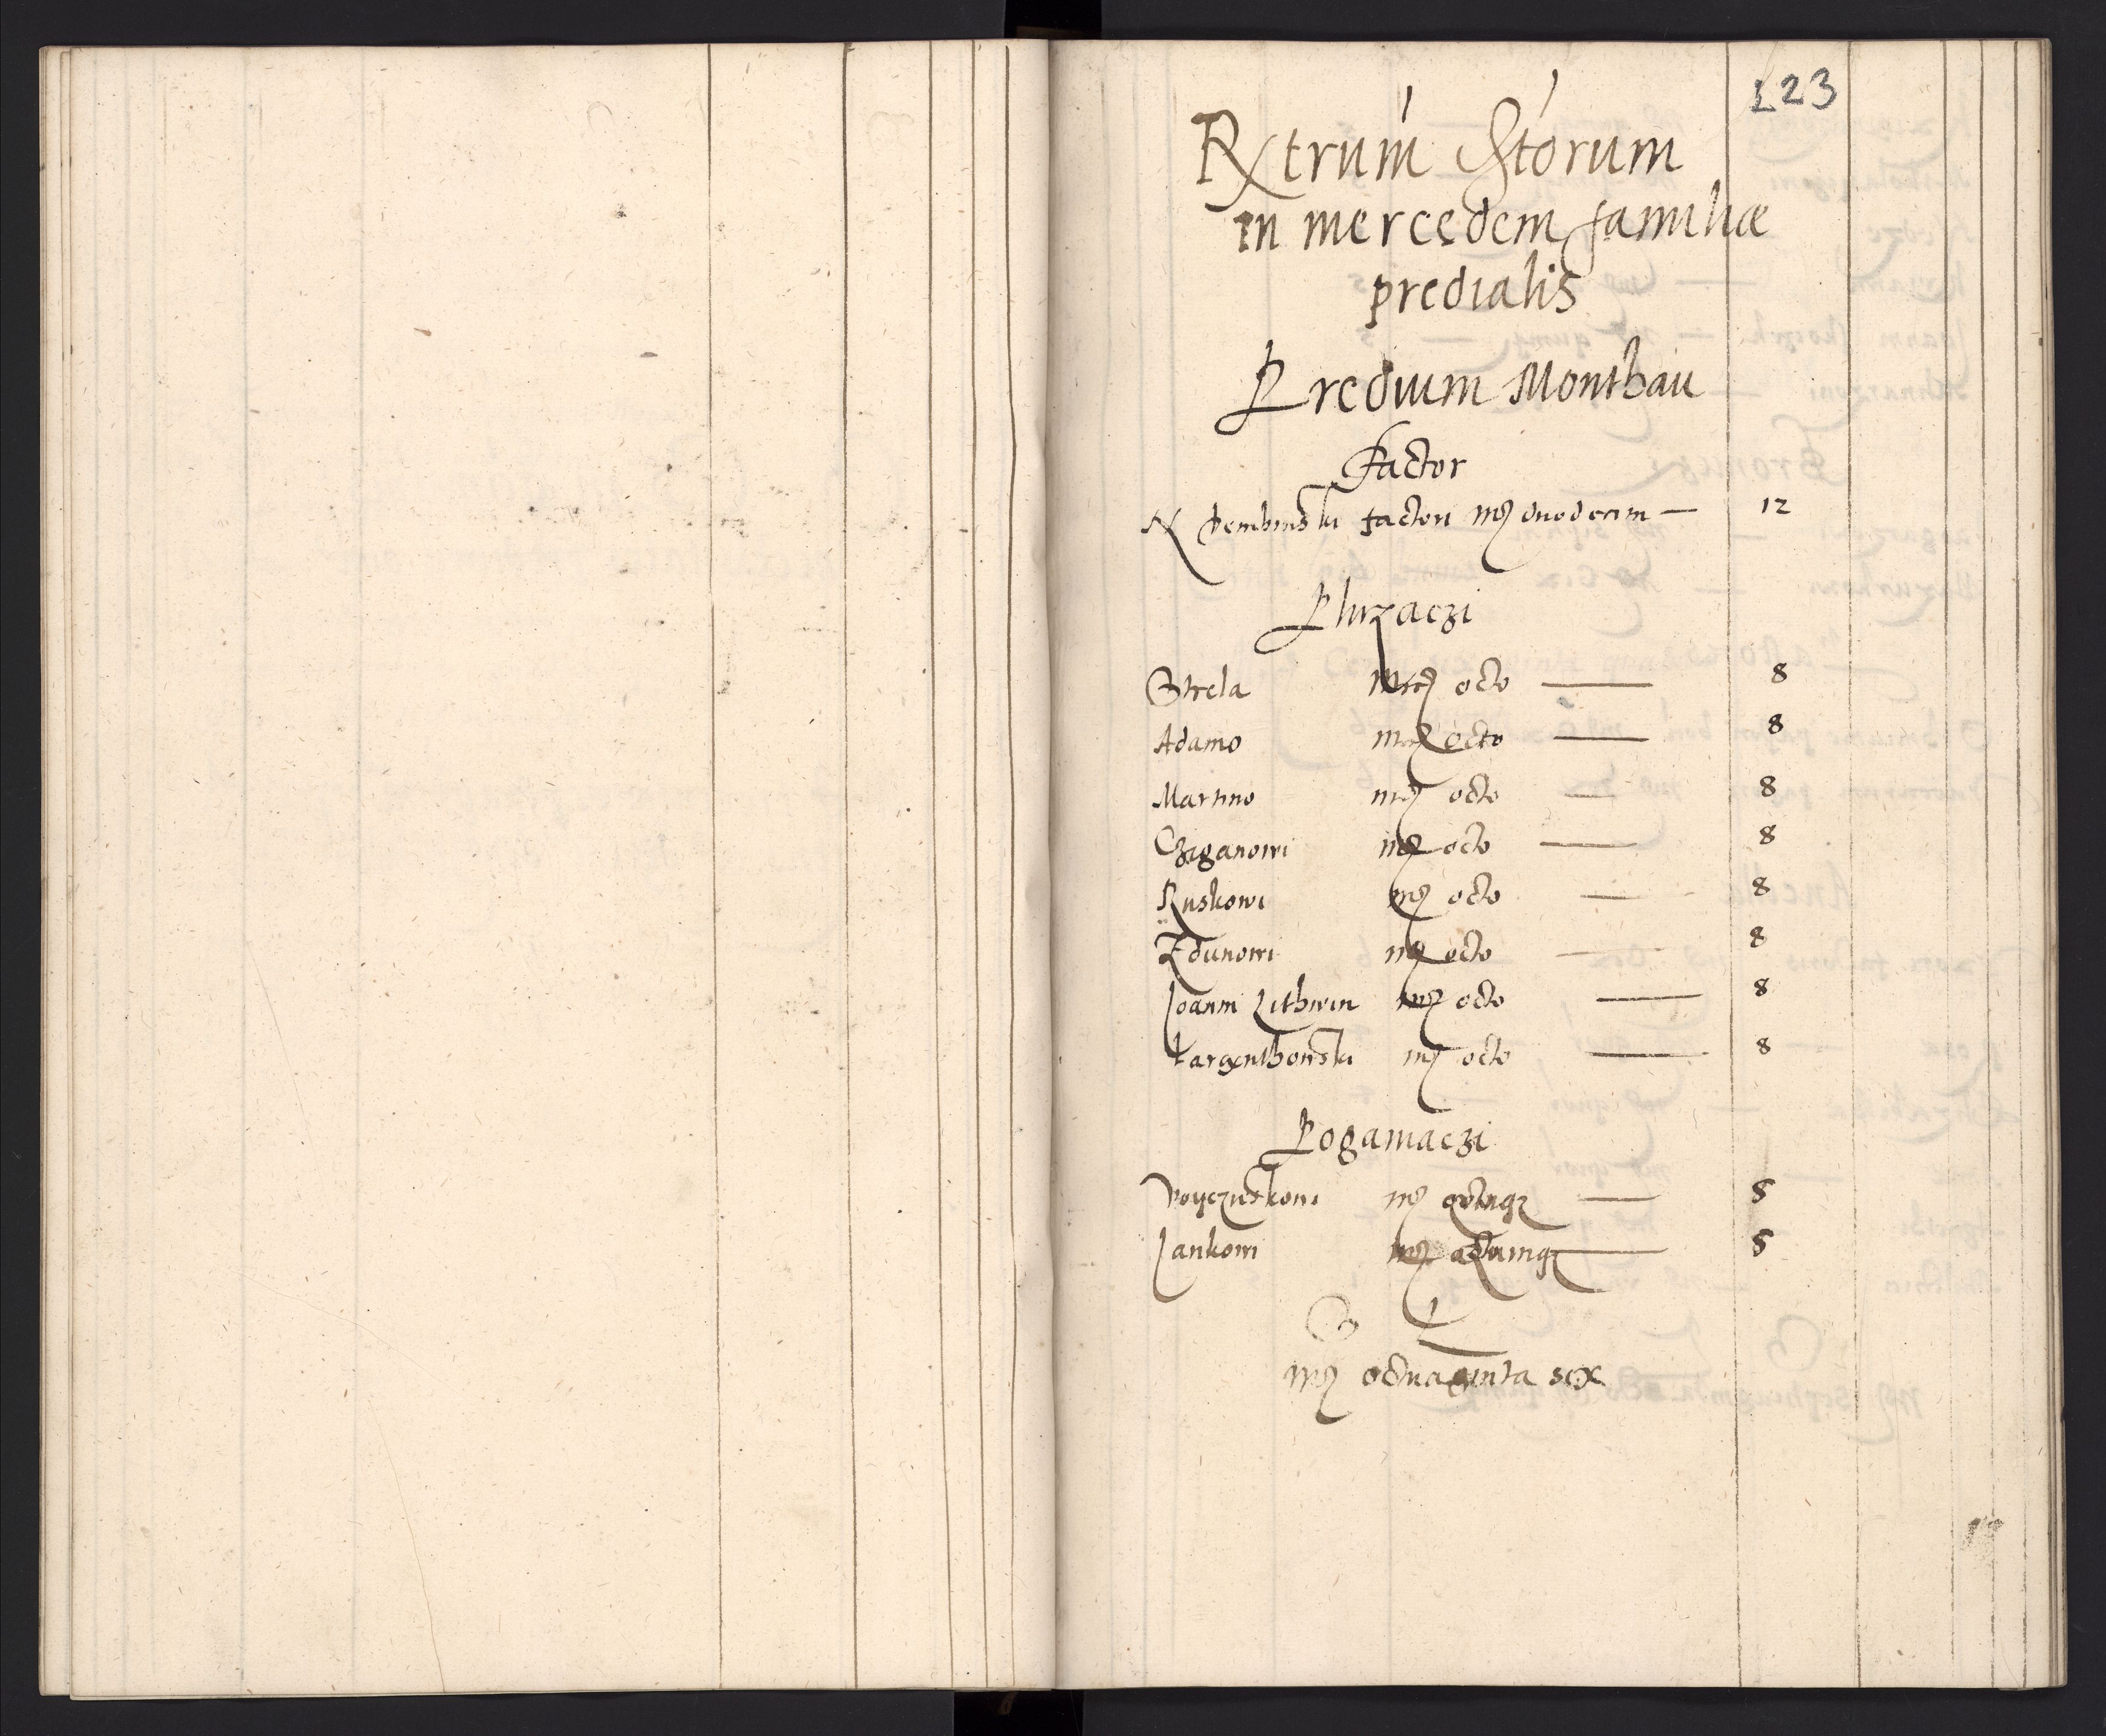 123
Rxtrum Storum
in mercedem familiæ
predialis
Predium Monthau
Factor
N Dembinski factori mrc duodecim — 12
Plużaczi
Strela mrc octo — 8
Adamo mrc octo — 8
Martino mrc octo — 8
Cziganowi mrc octo — 8
Ruskowi mrc octo — 8
Zdunowi mrc octo — 8
Joanni Lithwin mrc octo — 8
Targenthowski mrc octo — 8
Poganiaczi
Woyczieskowi mrc — 5
Jankowi mrc — 5
S
mrc octuaginta sex